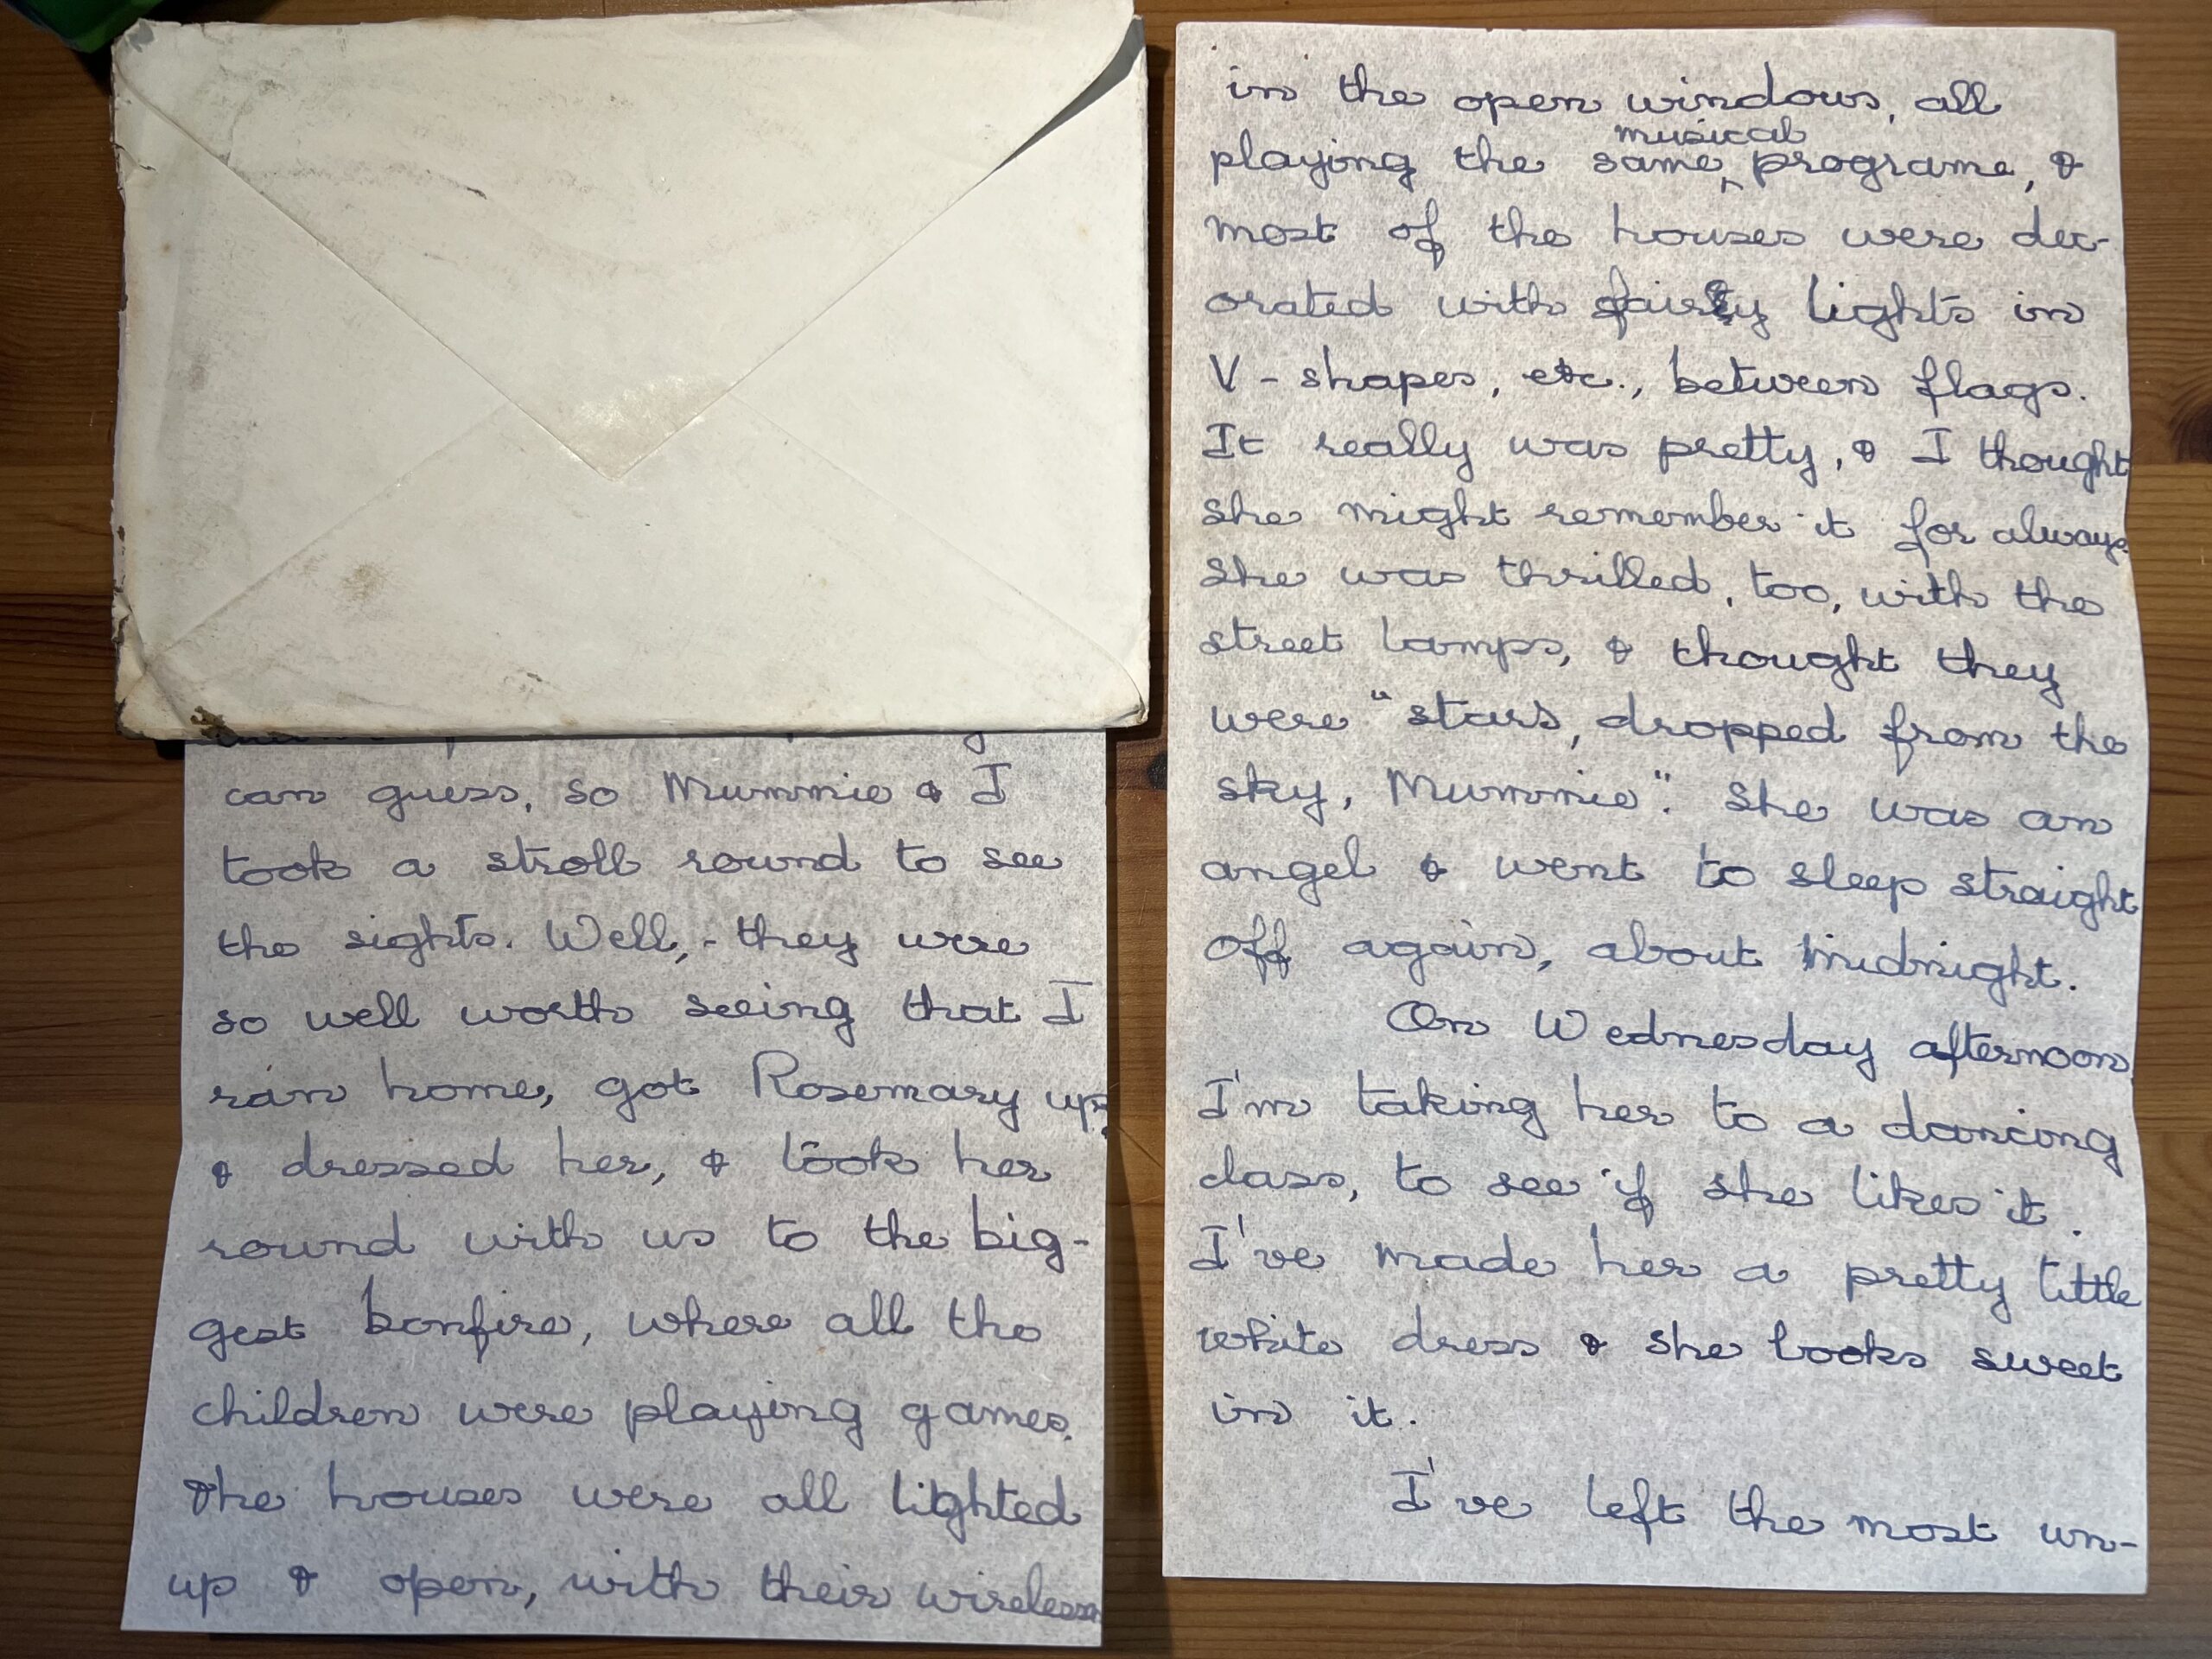 can guess, so Mummie & I
took a stroll round to see
the sights. Well,- they were
so well worth seeing that I
ran home, got Rosemary up,
& dressed her, & took her
round with us to the big-
gest bonfire, where all the
children were playing games.
The houses were all lighted
up & open, with their wireless
in the open windows, all
playing the same musical programe, &
most of the houses were dec-
orated with fairy lights in
V-shapes, etc., between flags.
It really was pretty, & I thought
she might remember it for always.
She was thrilled, too, with the
street lamps, & thought they
were "stars, dropped from the
sky, Mummie". She was an
angel & went to sleep straight
off again, about midnight.
On Wednesday afternoon
I'm taking her to a dancing
class, to see if she likes it.
I've made her a pretty little
white dress & she looks sweet
in it.
I've left the most un-